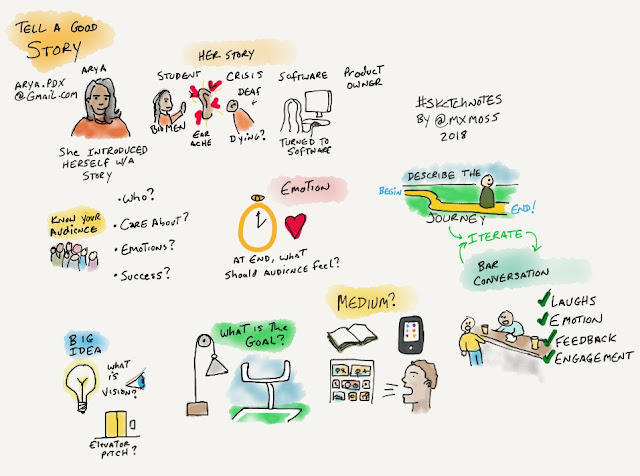 TELL A GOOD
STORY
ARYA
ARYA.PDX
@GMAIL.COM
SHE INTRODUCED
HERSELF W/A
STORY
HER STORY
STUDENT
BIOMEN
CRISIS
EAR
ACHE
DEAF
DYING?
SOFTWARE
TURNED TO
SOFTWARE
PRODUCT
OWNER
#SKETCHNOTES
BY @MXMOSS
2018
KNOW YOUR
AUDIENCE
• WHO?
• CARE ABOUT?
• EMOTIONS?
• SUCCESS?
EMOTION
AT END, WHAT
SHOULD AUDIENCE FEEL?
DESCRIBE THE
BEGIN
END!
JOURNEY
ITERATE
BAR
CONVERSATION
LAUGHS
EMOTION
FEEDBACK
ENGAGEMENT
BIG
IDEA
WHAT
IS
VISION?
ELEVATOR
PITCH?
WHAT IS THE
GOAL?
MEDIUM?